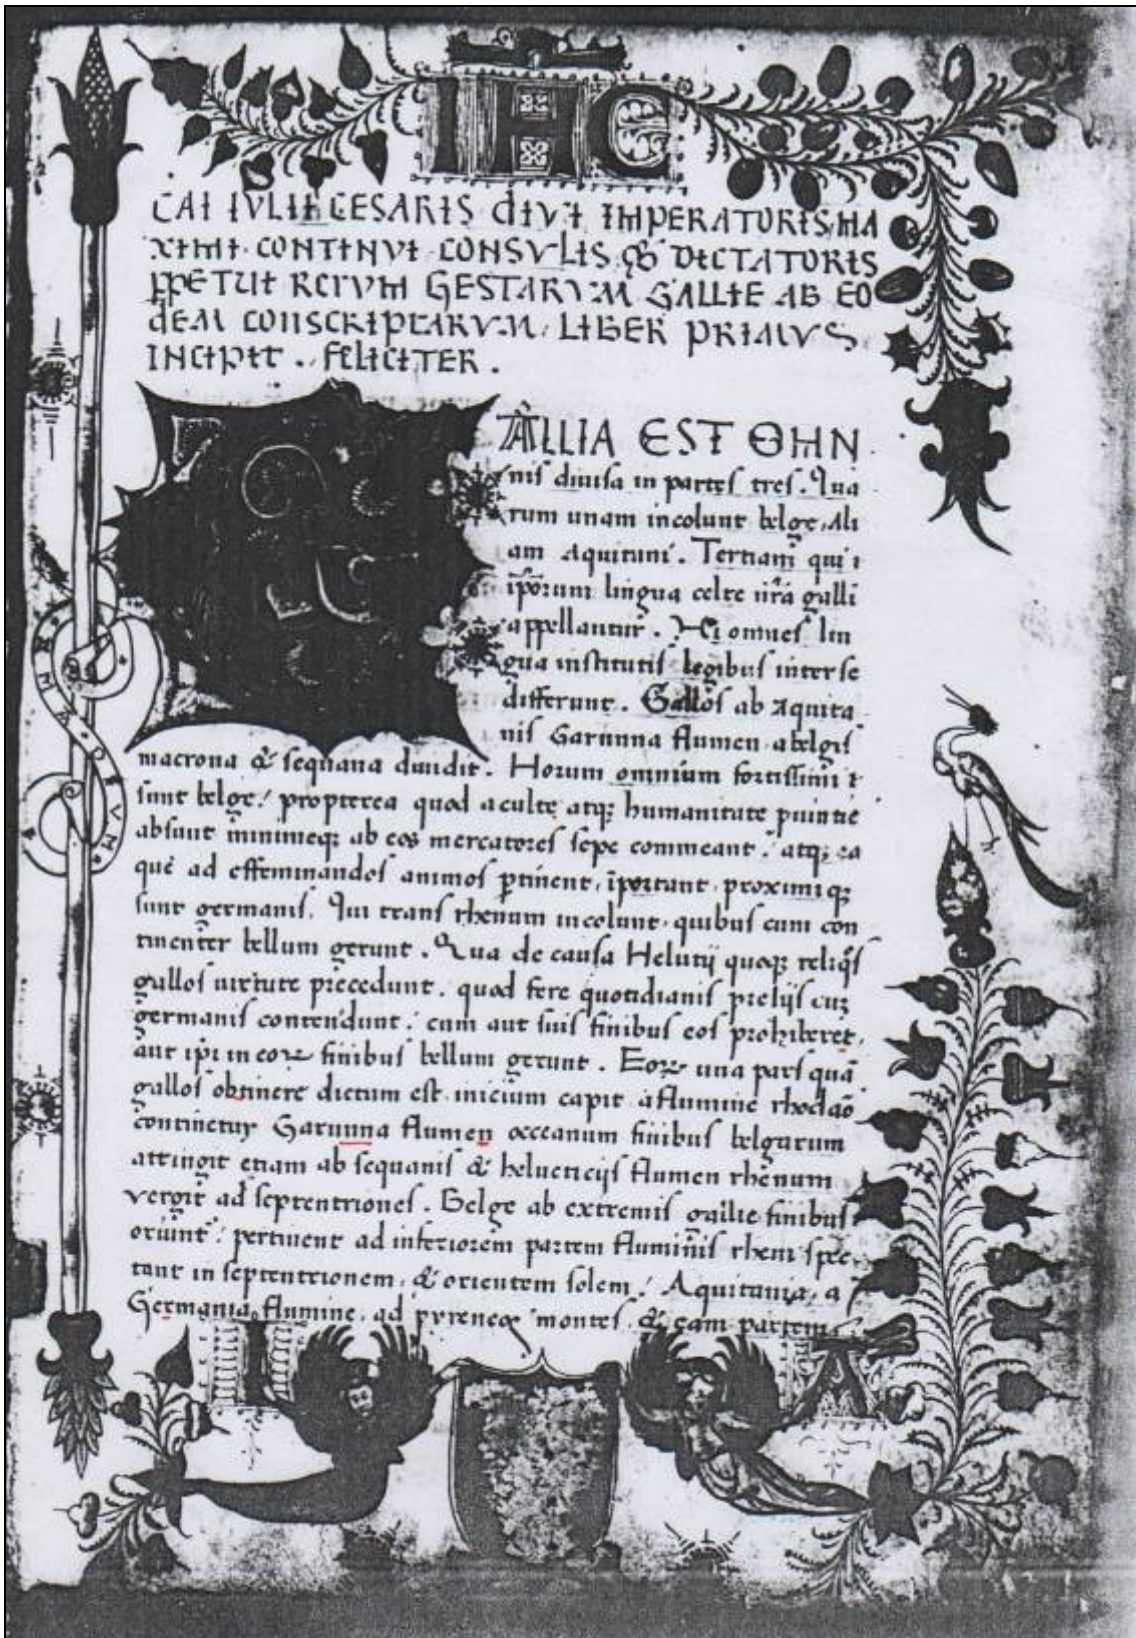 IHC
CAI IVLII CESARIS DIVI IMPERATORIS MA
XIMI CONTINVI CONSVLIS DICTATORIS
PPETUI RERVM GESTARVM GALLIE AB EO
DEM CONSCRIPTARVM LIBER PRIMVS
INCIPIT . FELICITER .
GALLIA EST OMN
nis diuisa in partes tres . Qua
rum unam incolunt belge, Ali
am Aquitani . Tertiam qui
ip̄orum lingua celte nr̄a galli
appellantur . Hi omnes lin
gua institutis legibus inter se
differunt . Gallos ab aquita
nis Garunna flumen a belgis
macrona & sequana diuidit . Horum omnium fortissimi
sunt belge / propterea quod a culte atq; humanitate puintie
absunt minimeq; ab eos mercatores sepe commeant / atq; ea
que ad effeminandos animos ptinent, iportant proximiq;
sunt germanis, Qui trans rhenum incolunt quibus cum con
tinenter bellum gerunt . Qua de causa Heluetij quoq; reliqs
gallos uirtute precedunt . quod fere quotidianis prelijs cuz
germanis contendunt / cum aut suis finibus eos prohiberet,
aut ipi in eoꝝ finibus bellum gerunt . Eoꝝ una pars quā
gallos obtinere dictum est inicium capit a flumine rhodāo
continetur Garunna flumen occeanum finibus belgarum
attingit etiam ab sequanis & helueticijs flumen rhenum
vergit ad septentriones . Belge ab extremis gallie finibus
oriunt / pertinent ad inferiorem partem fluminis rheni spec
tant in septentrionem & orientem solem / Aquitania, a
Germania flumine ad pyreneos montes & eam partem